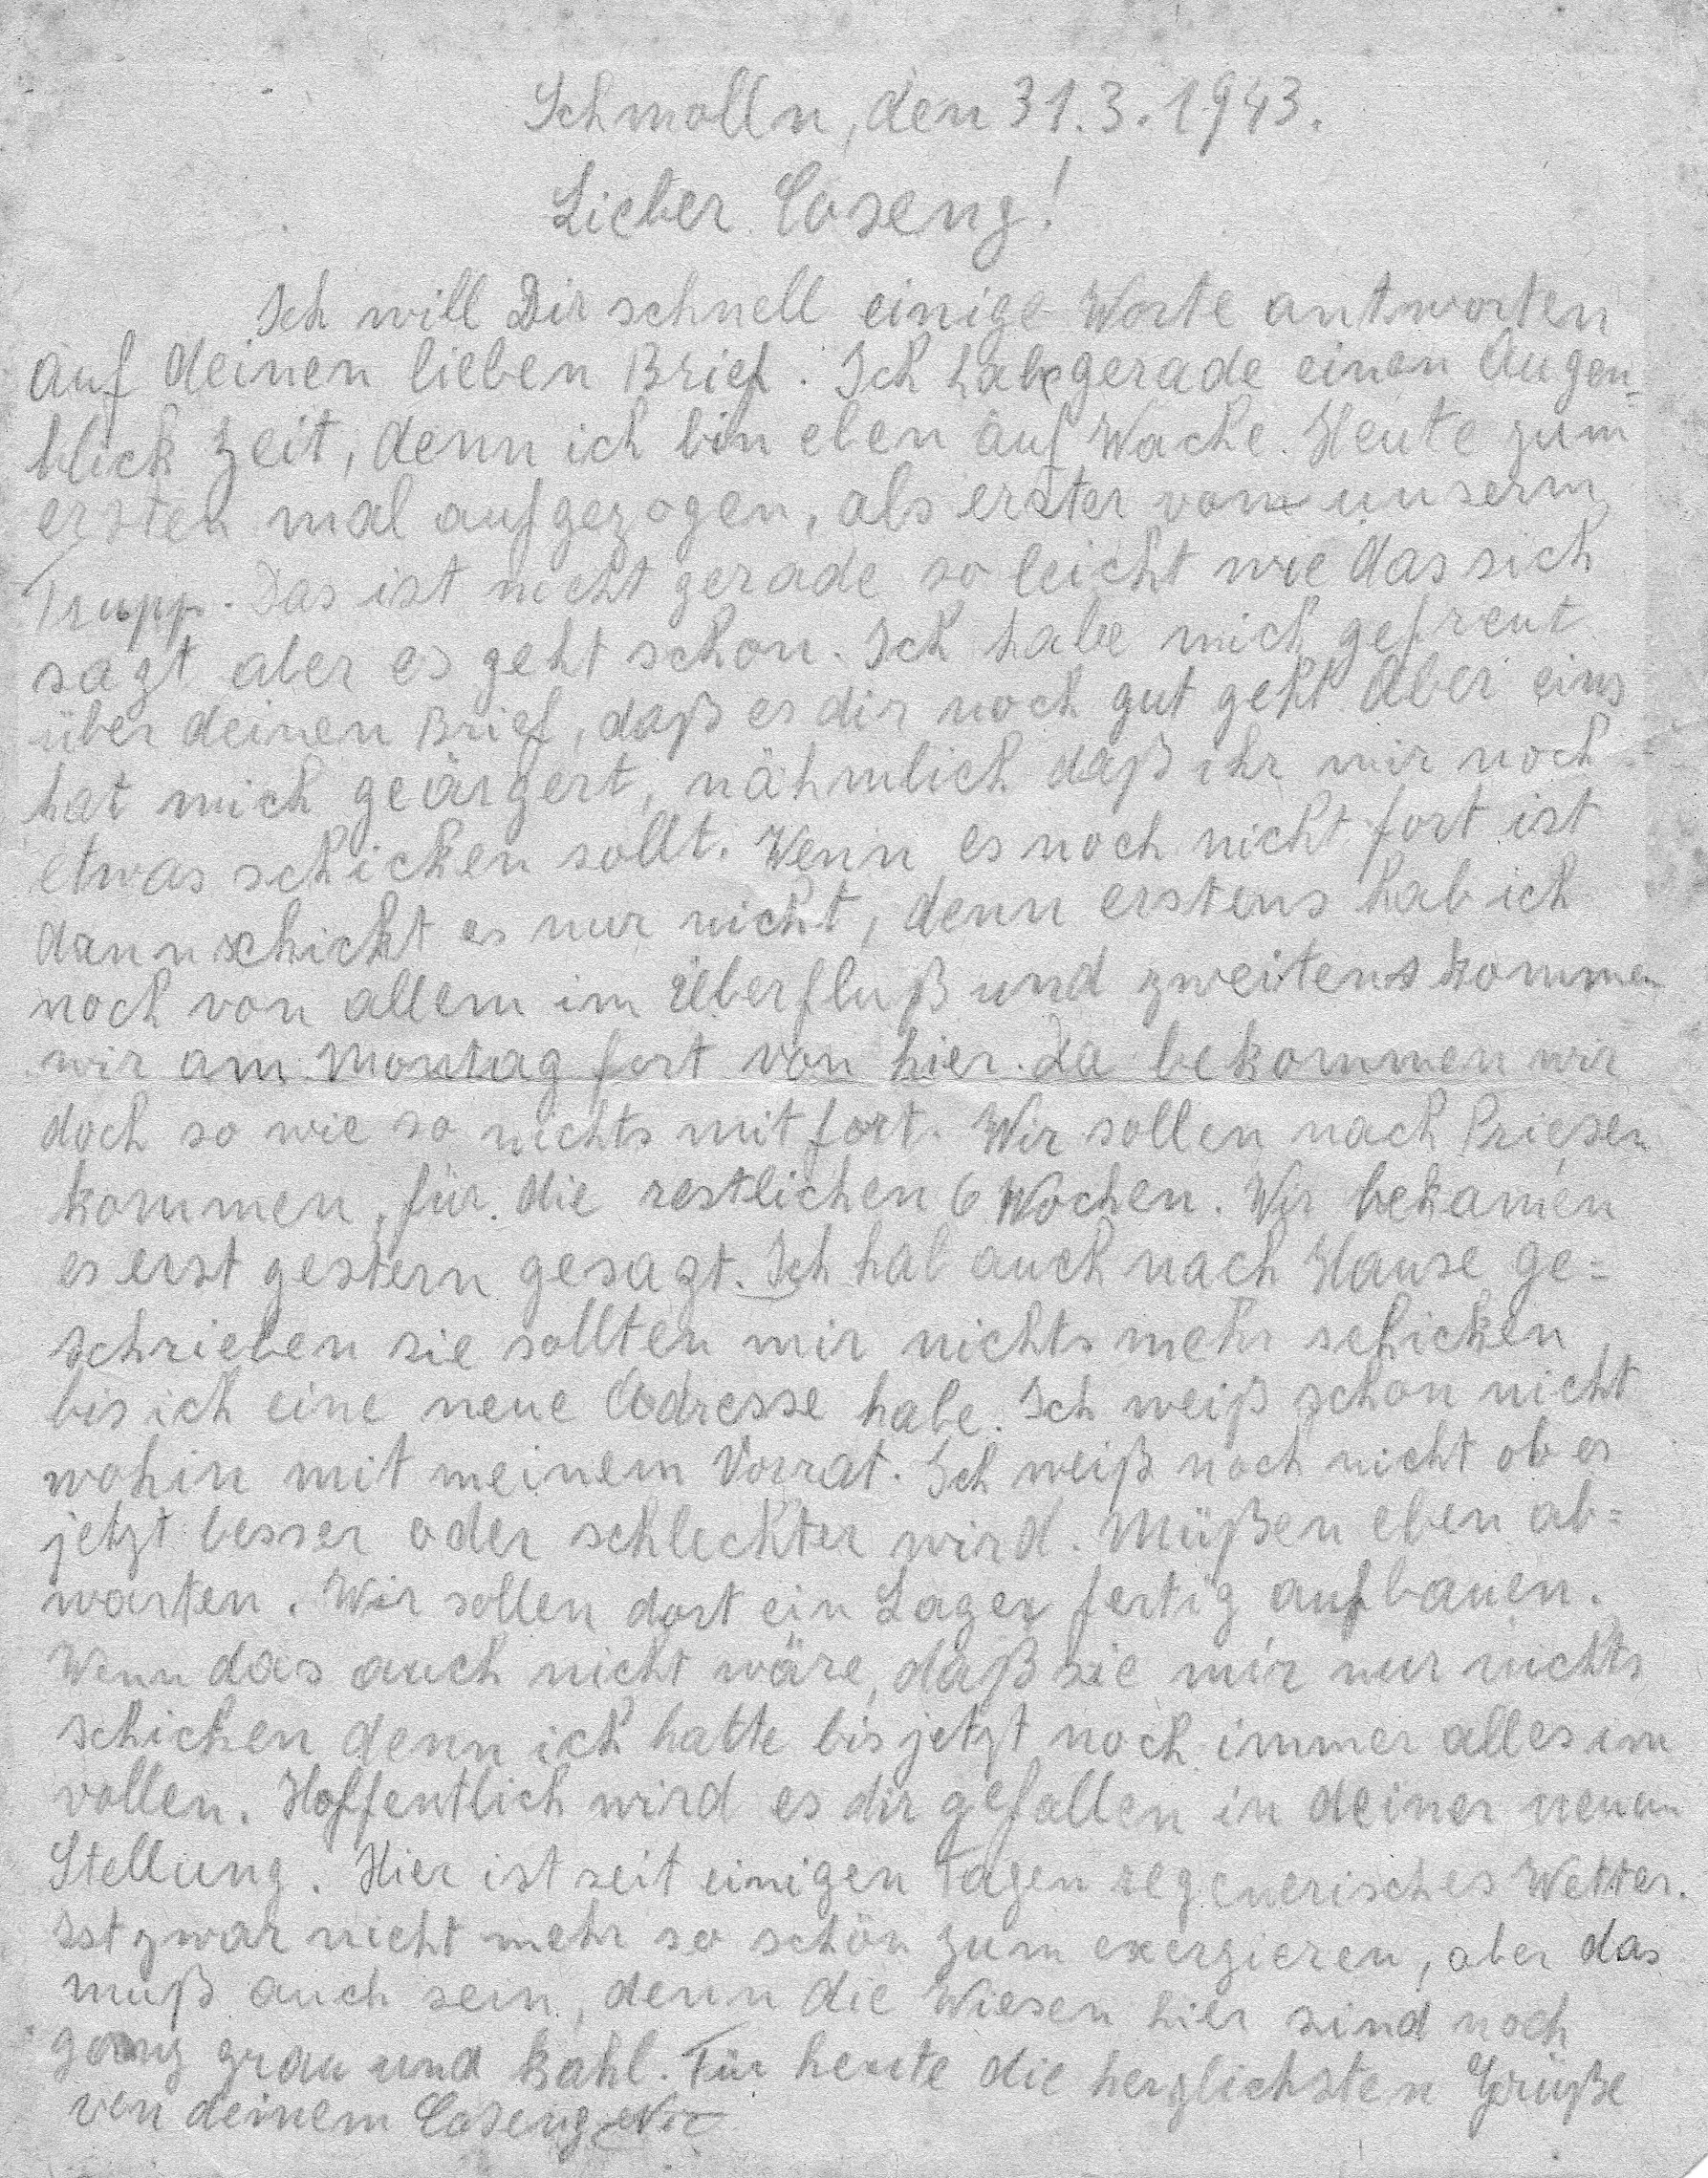 Schmolln, den 31.3.1943.
Lieber Coseng!
Ich will Dir schnell einige Worte antworten
auf deinen lieben Brief. Ich habe gerade einen Augen-
blick Zeit, denn ich bin eben auf Wache. Heute zum
ersten mal aufgezogen, als erster von unserm
Trupp. Das ist nicht gerade so leicht wie das sich
sagt aber es geht schon. Ich habe mich gefreut
über deinen Brief, daß es dir noch gut geht. Aber eins
hat mich geärgert, nähmlich daß ihr mir noch
etwas schicken sollt. Wenn es noch nicht fort ist
dann schickt es nur nicht, denn erstens hab ich
noch von allem im Überfluß und zweitens kommen
wir am Montag fort von hier. Da bekommen wir
doch so wie so nichts mit fort. Wir sollen nach Priesen
kommen, für die restlichen 6 Wochen. Wir bekamen
es erst gestern gesagt. Ich hab auch nach Hause ge=
schrieben sie sollten mir nichts mehr schicken
bis ich eine neue Adresse habe. Ich weiß schon nicht
wohin mit meinem Vorrat. Ich weiß noch nicht ob es
jetzt besser oder schlechter wird. Müßen eben ab=
warten. Wir sollen dort ein Lager fertig aufbauen.
Wenn das auch nicht wäre, daß sie mir nur nichts
schicken denn ich hatte bis jetzt noch immer alles im
vollen. Hoffentlich wird es dir gefallen in deiner neuen
Stellung. Hier ist seit einigen Tagen regenerisches Wetter.
Ist zwar nicht mehr so schön zum exerzieren, aber das
muß auch sein, denn die Wiesen hier sind noch
ganz grau und kahl. Für heute die herzlichsten Grüße
von deinem Coseng